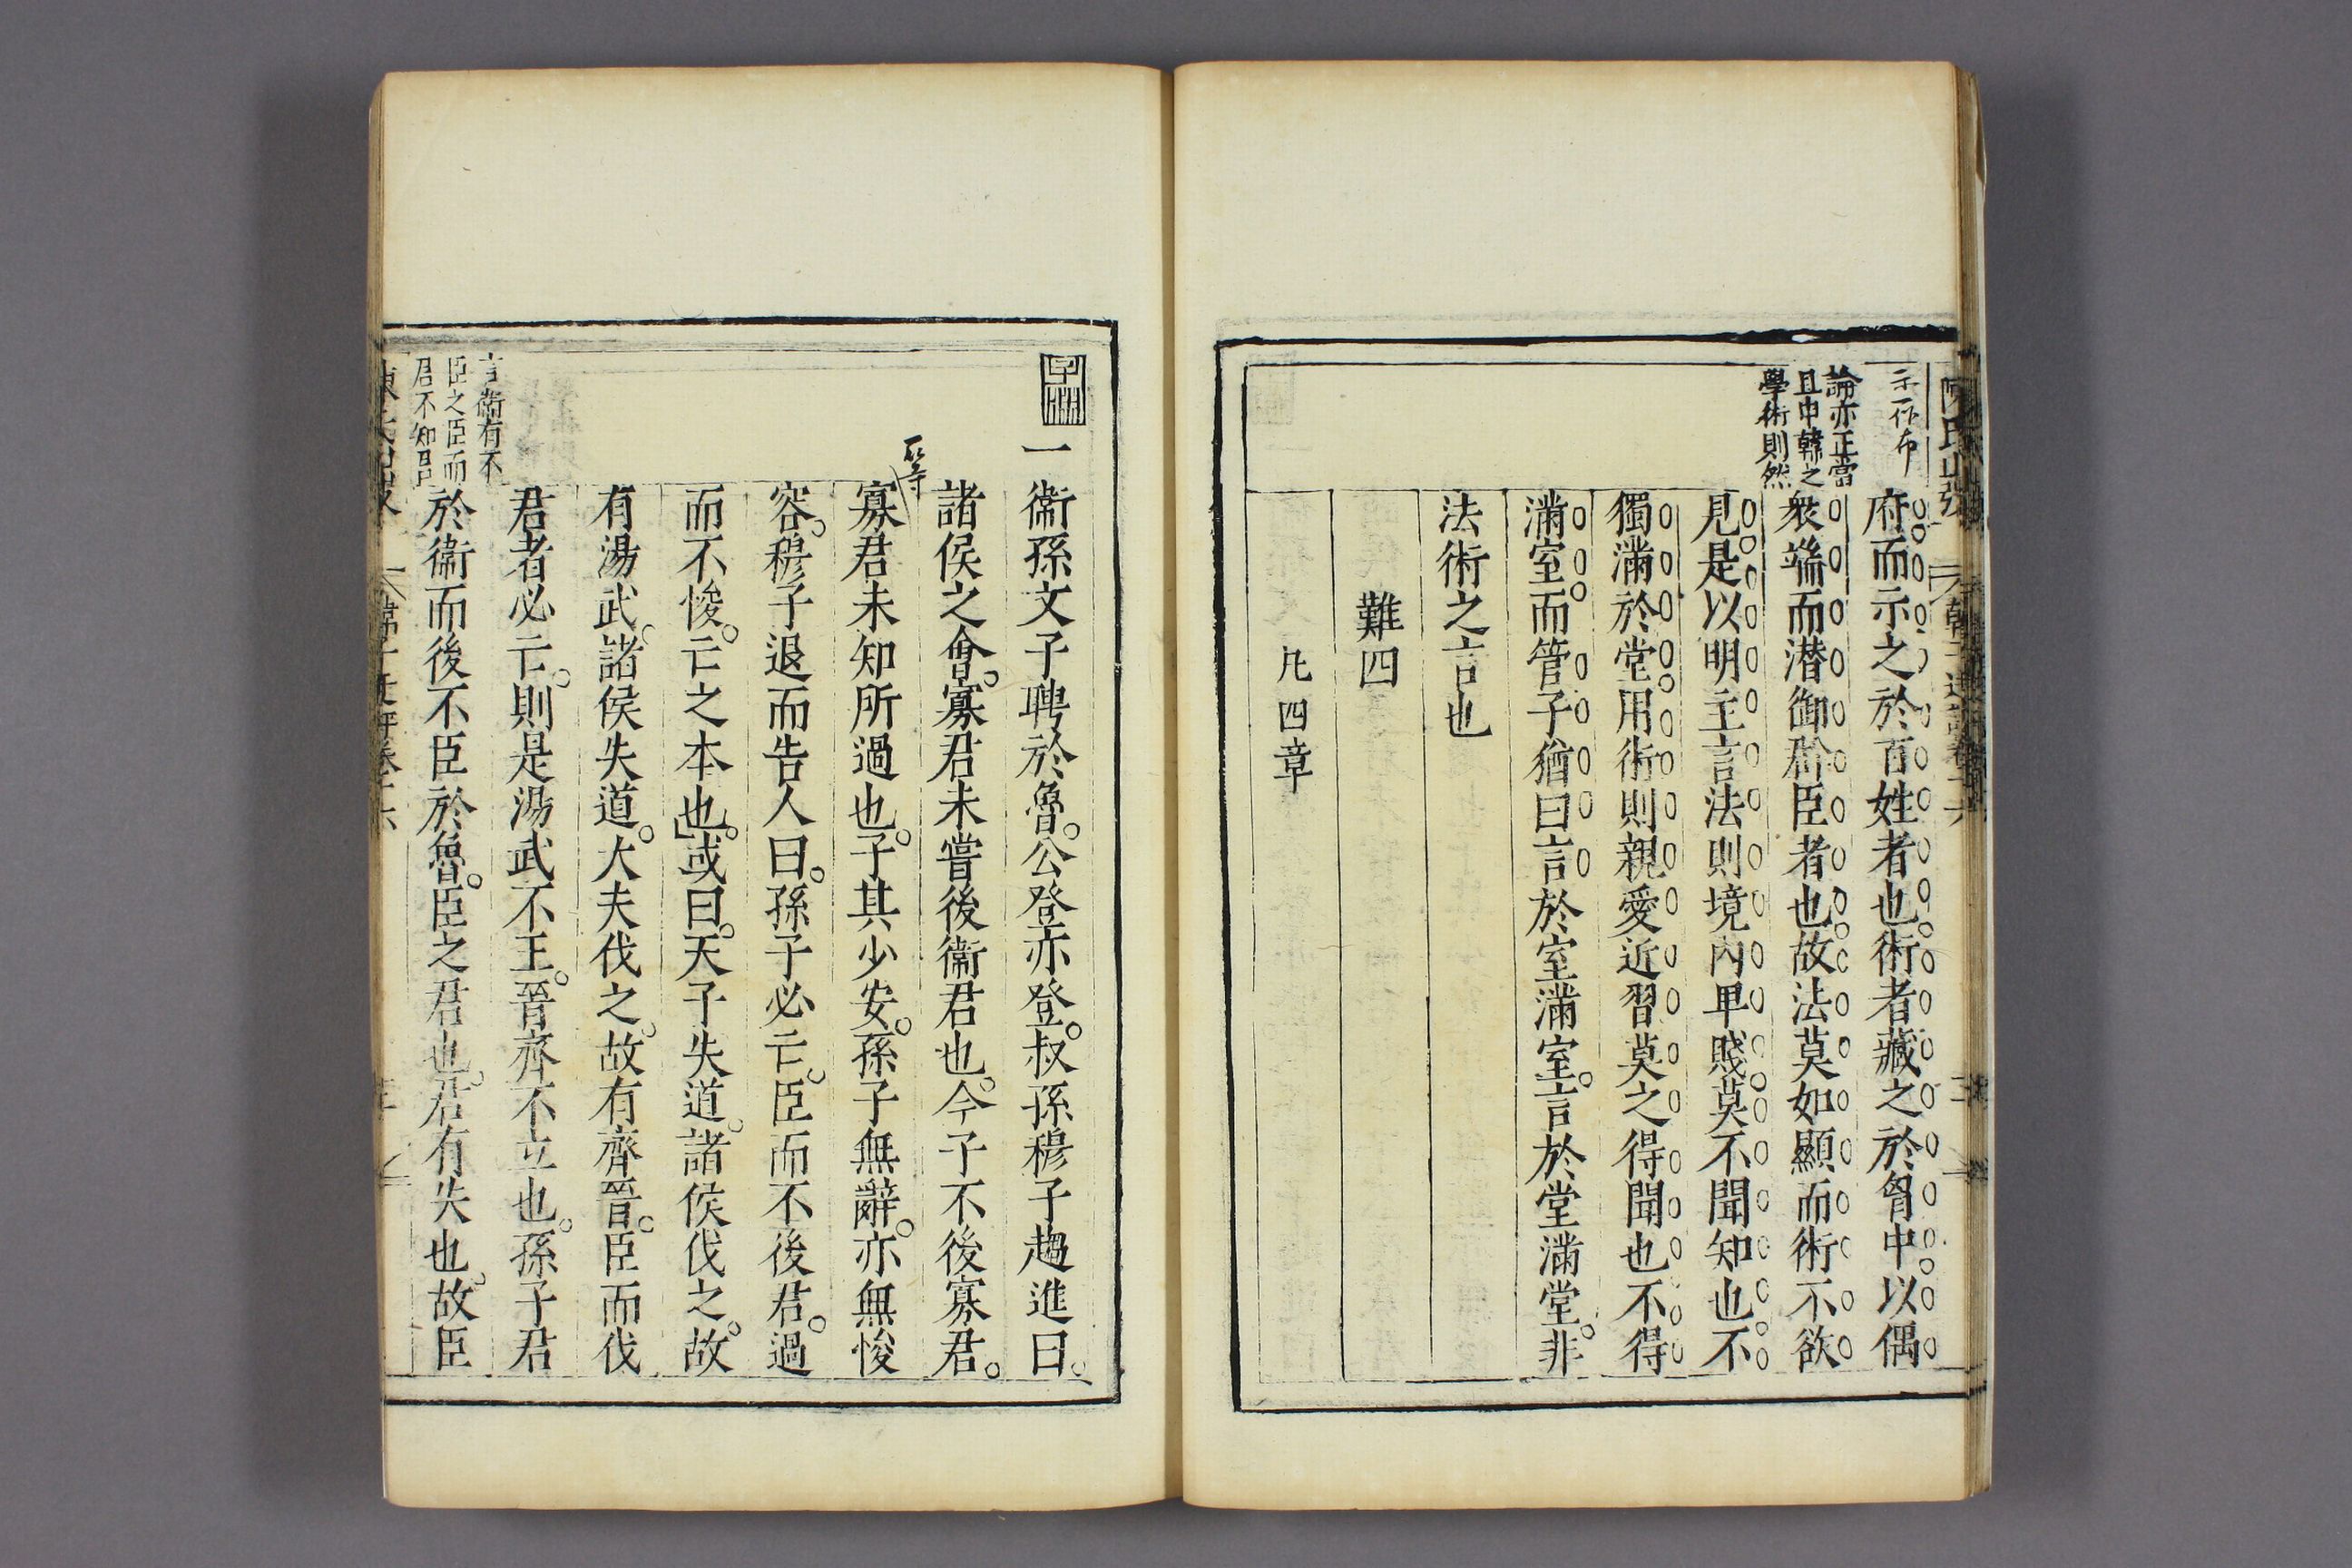 示一作布
論亦正當
且申韓之
學術則然
府而示之於百姓者也術者藏之於胷中以偶
衆端而潜御羣臣者也故法莫如顯而術不欲
見是以明主言法則境內卑賤莫不聞知也不
獨滿於堂用術則親愛近習莫之得聞也不得
滿室而管子猶曰言於室滿室言於堂滿堂非
法術之言也
難四
凡四章
一衞孫文子聘於魯公登亦登叔孫穆子趨進曰
諸侯之會寡君未嘗後衞君也今子不後寡君
一等
寡君未知所過也子其少安孫子無辭亦無悛
容穆子退而告人曰孫子必亡臣而不後君過
而不悛亡之本也或曰天子失道諸侯伐之故
有湯武諸侯失道大夫伐之故有齊晉臣而伐
君者必亡則是湯武不王晉齊不立也孫子君
言衞有不
臣之臣而
君不知
於衞而後不臣於魯臣之君也君有失也故臣